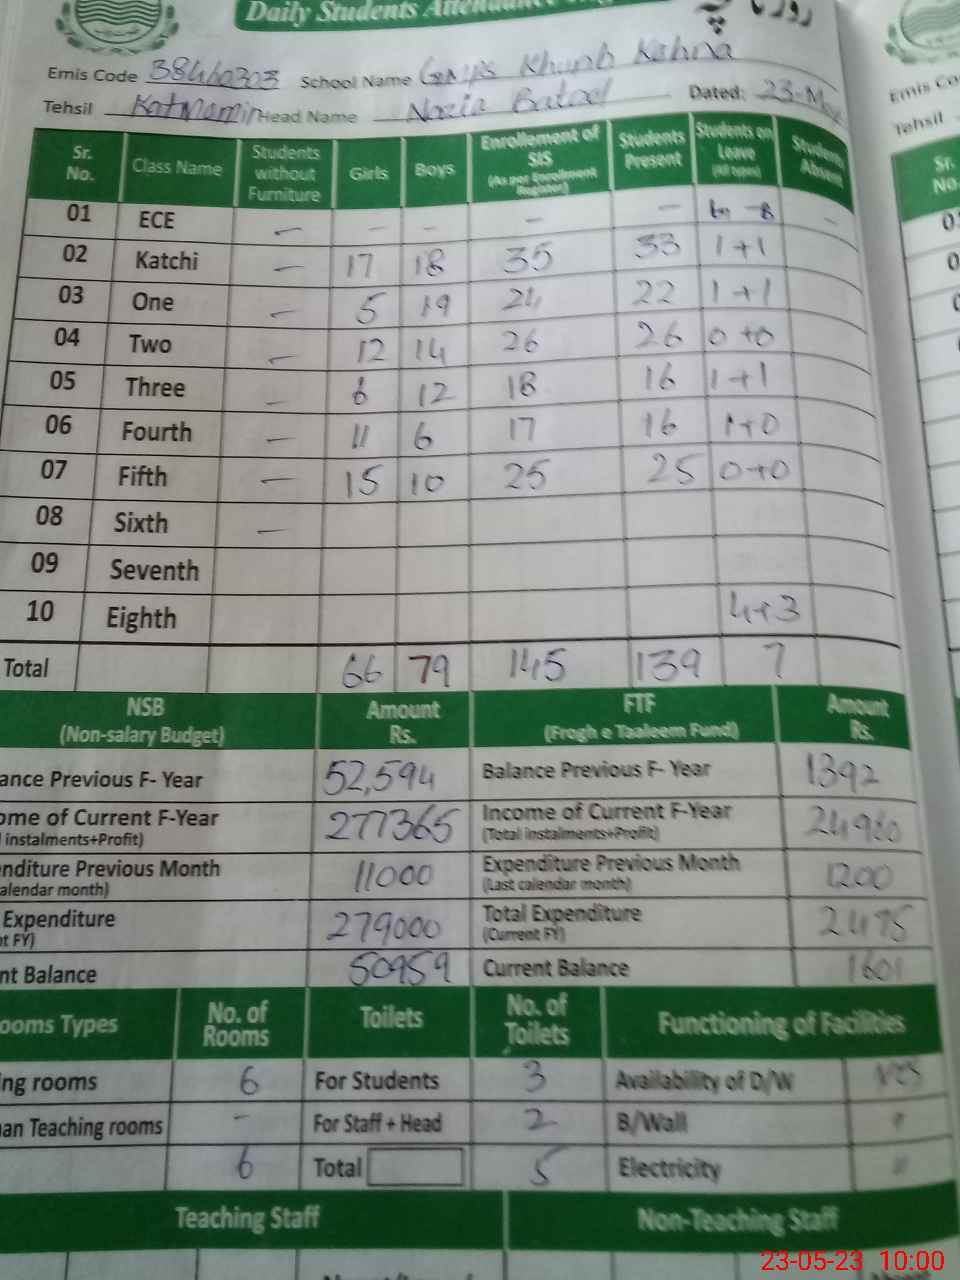 Daily Students Attendance
Emis Code 38440303 School Name GMPS Khunb Kahna
Tehsil Kotmomin Head Name Nazia Batool Dated: 23-May
Sr. No. Class Name Students without Furniture Girls Boys Enrollement of SIS (As per Enrollment Register) Students Present Students on Leave (All types) Students Absent
01 ECE - - - - - -
02 Katchi - 17 18 35 33 1+1
03 One - 5 19 24 22 1+1
04 Two - 12 14 26 26 0+0
05 Three - 6 12 18 16 1+1
06 Fourth - 11 6 17 16 1+0
07 Fifth - 15 10 25 25 0+0
08 Sixth -
09 Seventh
10 Eighth 4+3
Total 66 79 145 139 7
NSB (Non-salary Budget) Amount Rs. FTF (Frogh e Taaleem Fund) Amount Rs.
ance Previous F- Year 52,594 Balance Previous F- Year 1392
ome of Current F-Year 277365 Income of Current F-Year
instalments+Profit) (Total instalments+Profit)
nditure Previous Month 11000 Expenditure Previous Month 1200
alendar month) (Last calendar month)
Expenditure 279000 Total Expenditure 2475
nt FY) (Current FY)
nt Balance 50959 Current Balance 1601
ooms Types No. of Rooms Toilets No. of Toilets Functioning of Facilities
ing rooms 6 For Students 3 Availability of D/W Yes
han Teaching rooms - For Staff + Head 2 B/Wall "
6 Total 5 Electricity "
Teaching Staff Non-Teaching Staff
23-05-23 10:00